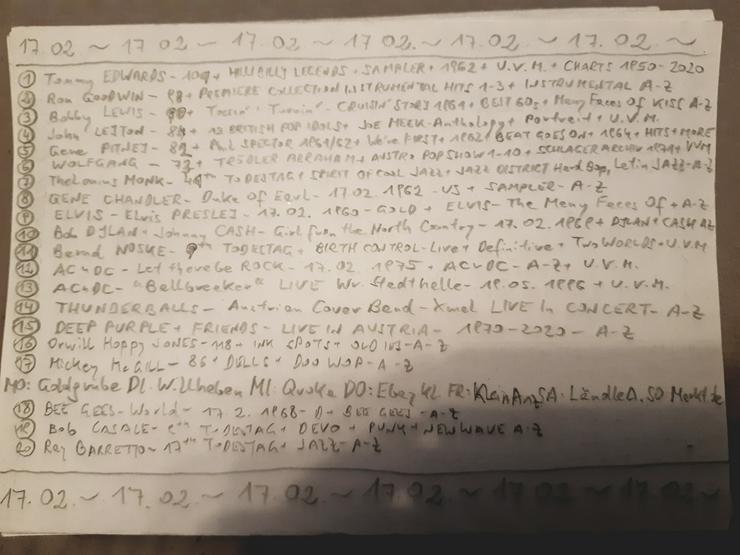 17.02. ~ 17.02 ~ 17.02 ~ 17.02. ~ 17.02. ~ 17.02. ~
① Tommy EDWARDS - 101 + HILLBILLY LEGENDS + SAMPLER + 1962 + U.V.M. + CHARTS 1950-2020
② Ron GOODWIN - 98 + PREMIERE COLLECTION INSTRUMENTAL HITS 1-3 + INSTRUMENTAL A-Z
③ Bobby LEWIS - + Tossin' Turnin' - CRUISIN' STORY 1961 + BEST 60s + Many Faces Of KISS A-Z
④ John LEYTON - + 13 BRITISH POP IDOLS + JOE MEEK - Anthology + Portrait + U.V.M.
⑤ Gene PITNEY - 82 + Phil SPECTOR 1961/62 + We're FIRST + 1962 BEAT GOES ON + 1964 + HITS + MORE
⑥ WOLFGANG - 77 + TRÖDLER ABRAHAM + AUSTRO POP SHOW 1-10 + SCHLAGERARCHIV 1971 + UVM
⑦ Thelonius MONK - TODESTAG + SPIRIT OF COOL JAZZ + JAZZ DISTRICT Hard Bop, Latin JAZZ - A-Z
⑧ GENE CHANDLER - Duke Of Earl - 17.02. 1962 - US + SAMPLER - A-Z
⑨ ELVIS - Elvis PRESLEY - 17.02. 1960 - GOLD + ELVIS - The Many Faces Of + A-Z
⑩ Bob DYLAN + Johnny CASH - Girl from the North Country - 17.02. 1969 + DYLAN + CASH AZ
⑪ Bernd NOSKE - 9th TODESTAG + BIRTH CONTROL - Live + Definitive + Two WORLDS + U.V.M
⑫ AC DC - Let there be ROCK - 17.02. 1975 + AC DC - A-Z + U.V.M.
⑬ AC DC - "Ballbreaker" LIVE Wr. Stadthalle - 19.05. 1996 + U.V.M.
⑭ THUNDERBALLS - Austrian Cover Band - Xmal LIVE In CONCERT - A-Z
⑮ DEEP PURPLE + FRIENDS - LIVE IN AUSTRIA - 1970-2020 - A-Z
⑯ Orvill Hoppy JONES - 118 + INK SPOTS + OLDIES - A-Z
⑰ Mickey McGILL - 86 + DELLS + DOO WOP - A-Z
MO: Goldgrube DI. W.Ilhaben MI. Quoka DO: Ebay Kl. FR: KleinAnz SA. Ländle A. SO Markt.de
⑱ BEE GEES - World - 17.2. 1968 - D + BEE GEES - A-Z
⑲ Bob CASALE - TODESTAG + DEVO + PUNK + NEW WAVE A-Z
⑳ Ray BARRETTO - 17th TODESTAG + JAZZ - A-Z
17.02. ~ 17.02. ~ 17.02. ~ 17.02. ~ 17.02. ~ 17.02. ~